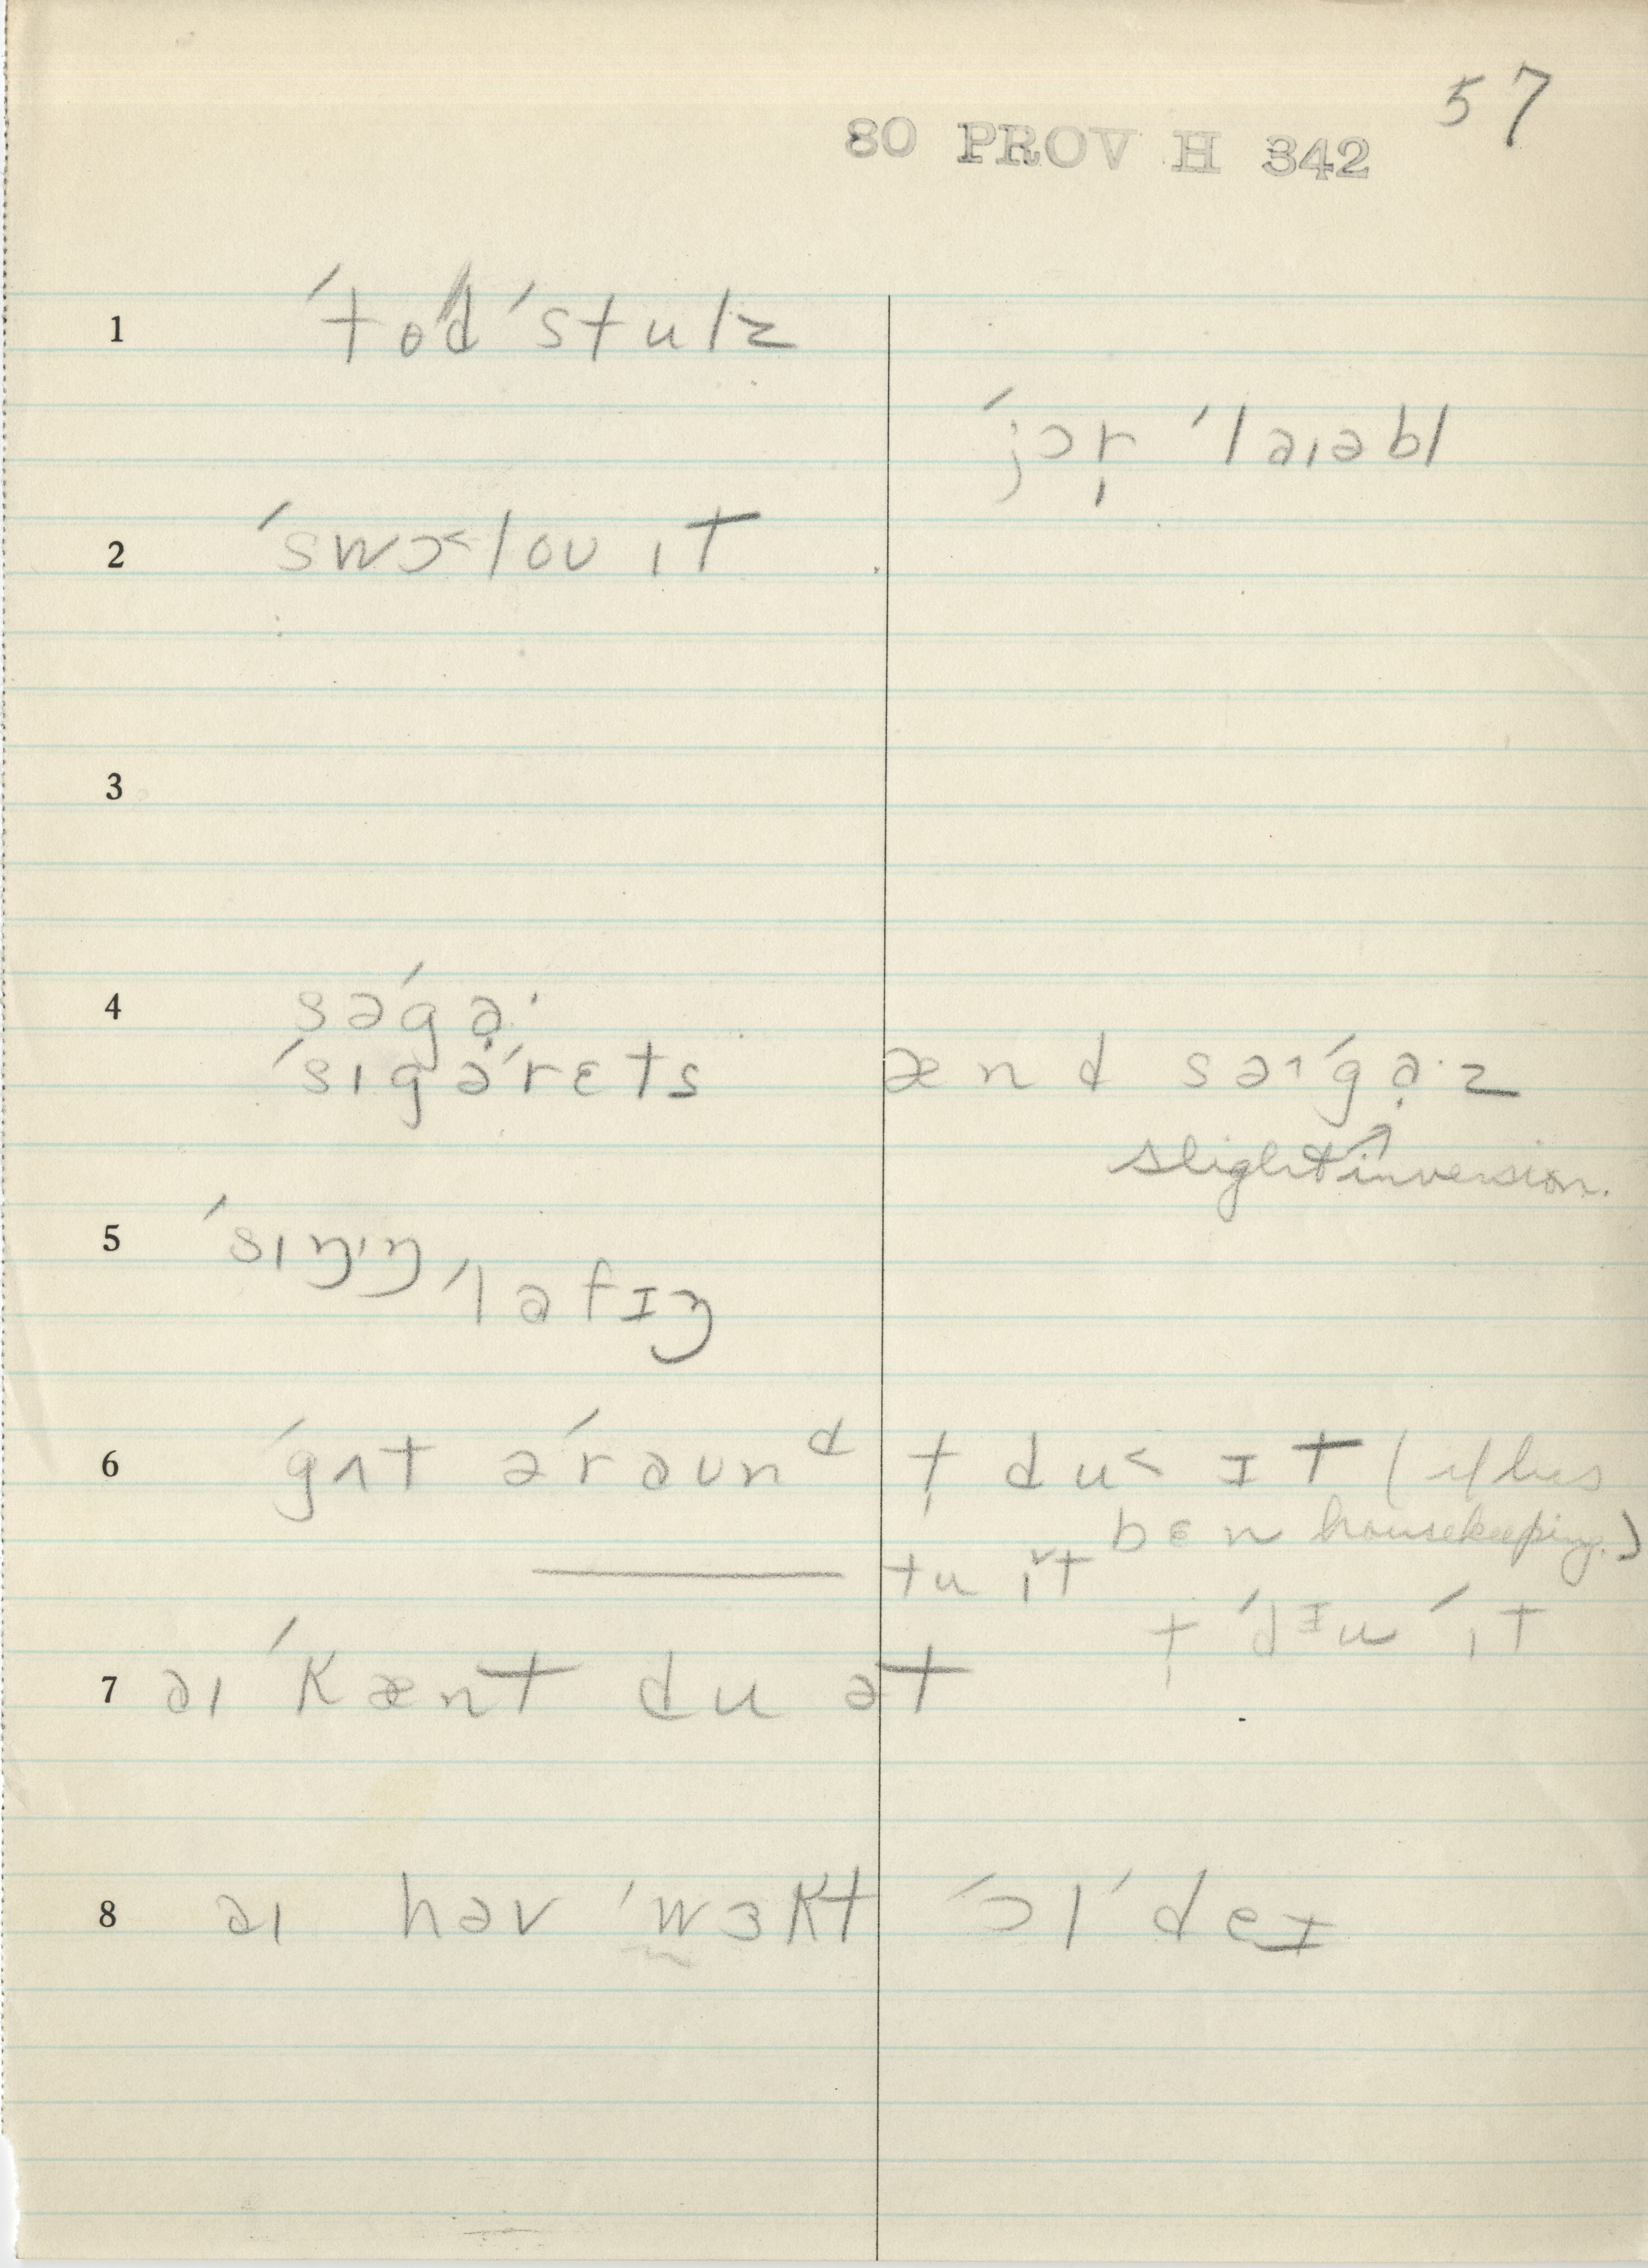 57
80 PROV H 342
1 ˈtodˈstulz
ˈjɔr̩ ˈlaɪəbl
2 ˈswɔ˂loʊ ɪt
3
4 səˈgạ·
ˈsɪgəˈrɛts ænd səɪˈgạ·z
slight inversion.
5 ˈsɪŋɪŋ ˈlafɪŋ
6 ˈgʌt əˈraʊnᵈ t̩ du˂ ɪt (
bɛn housekeeping.)
——— tu ɪ̆t
t̩ ˈdɪu ˈɪt
7 aɪ ˈkænt du ət
8 aɪ həv ˈwɜkt ˈɔlˈdeɪ